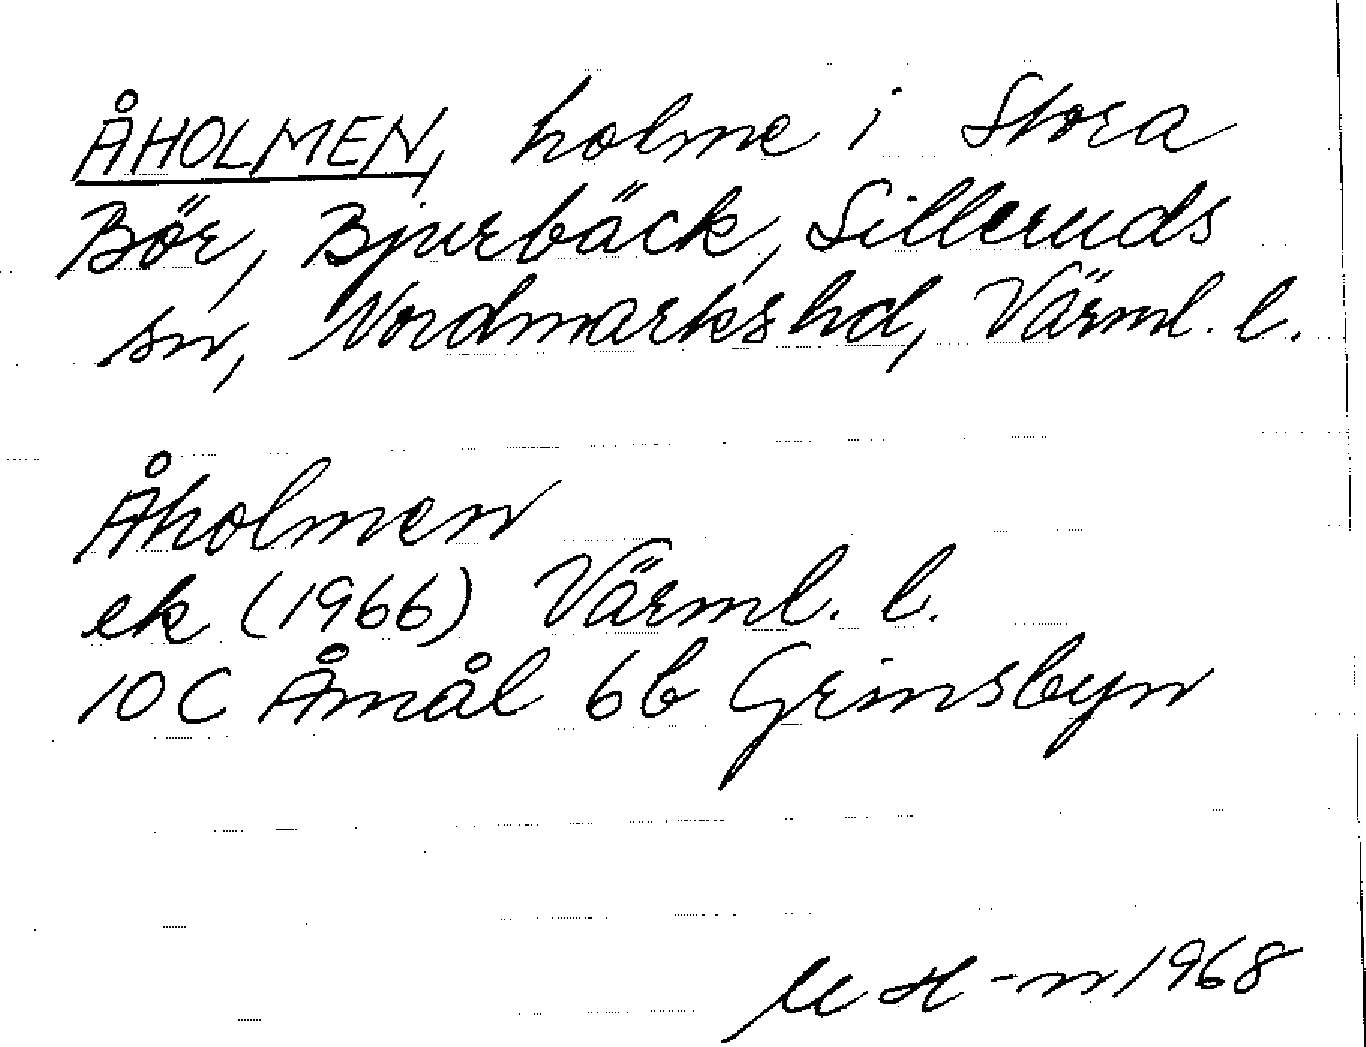 ÅHOLMEN, holme i Stora
Bör, Bjurbäck, Silleruds
sn, Nordmarks hd, Värml. l.
Åholmen
ek (1966) Värml. l.
10C Åmål 6b Grinsbyn
H-n 1968